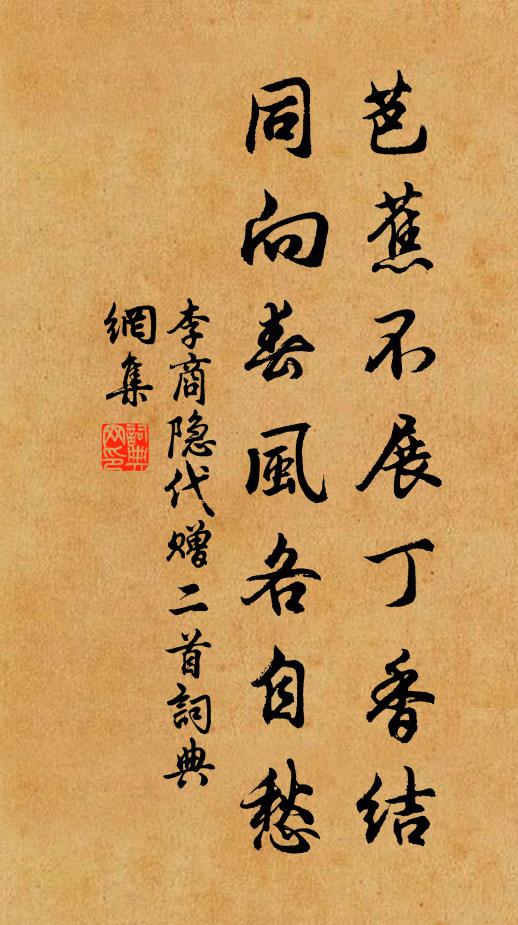 芭蕉不展丁香結
同向春風各自愁
李商隐代赠二首詞典
網集
詞典網印